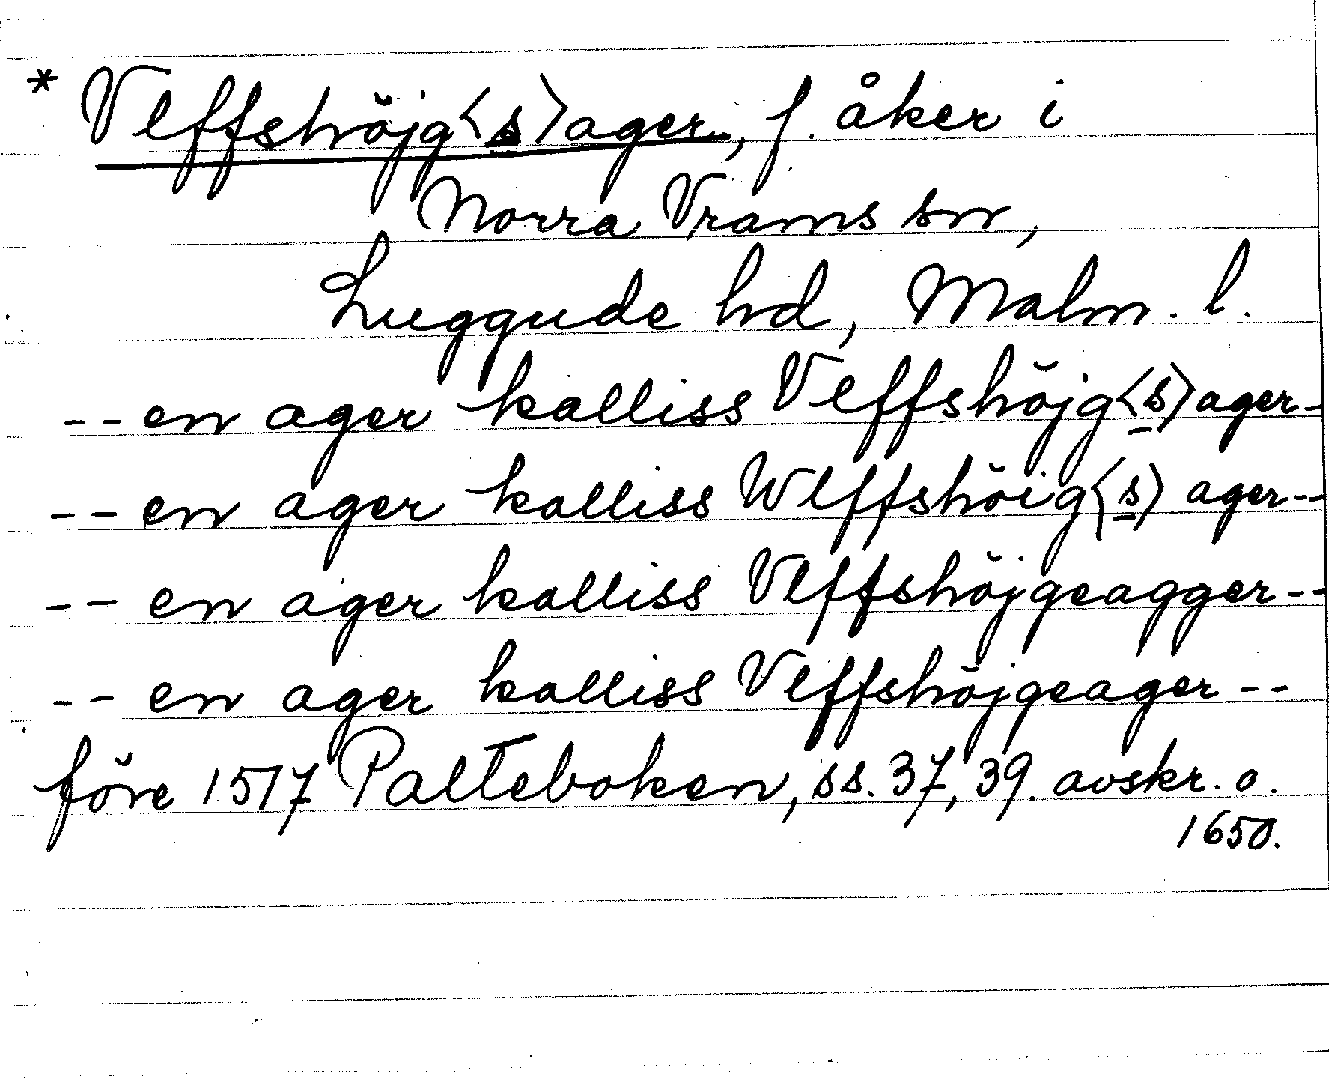 * Vlffshöjg<s>ager, f. åker i
Norra Vrams sn,
Luggude hd, Malm. l.
-- en ager kalliss Vlffshöjg<s>ager-
-- en ager kalliss Wlffshöig<s> ager--
-- en ager kalliss Vlffshöjgeagger--
-- en ager kalliss Vlffshöjgeager --
före 1517 Palteboken, ss. 37, 39. avskr. o.
1650.